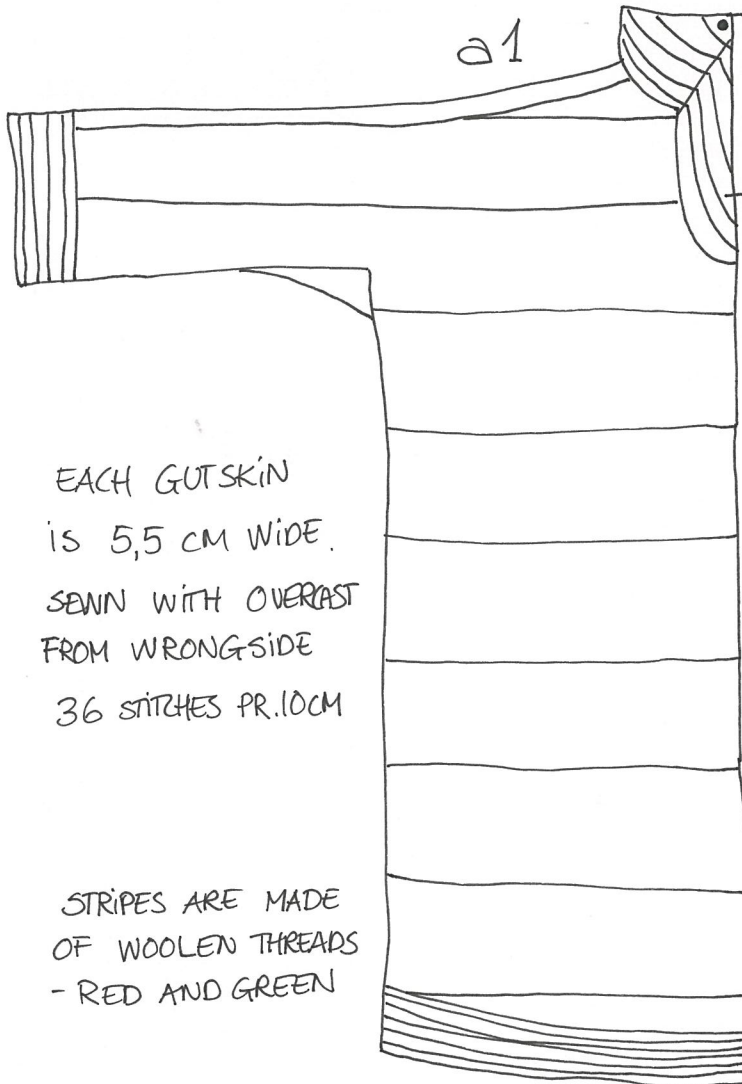 a1
EACH GUTSKIN
iS 5,5 CM WIDE.
SEWN WITH OVERCAST
FROM WRONGSIDE
36 STITCHES PR.10CM
STRIPES ARE MADE
OF WOOLEN THREADS
- RED AND GREEN